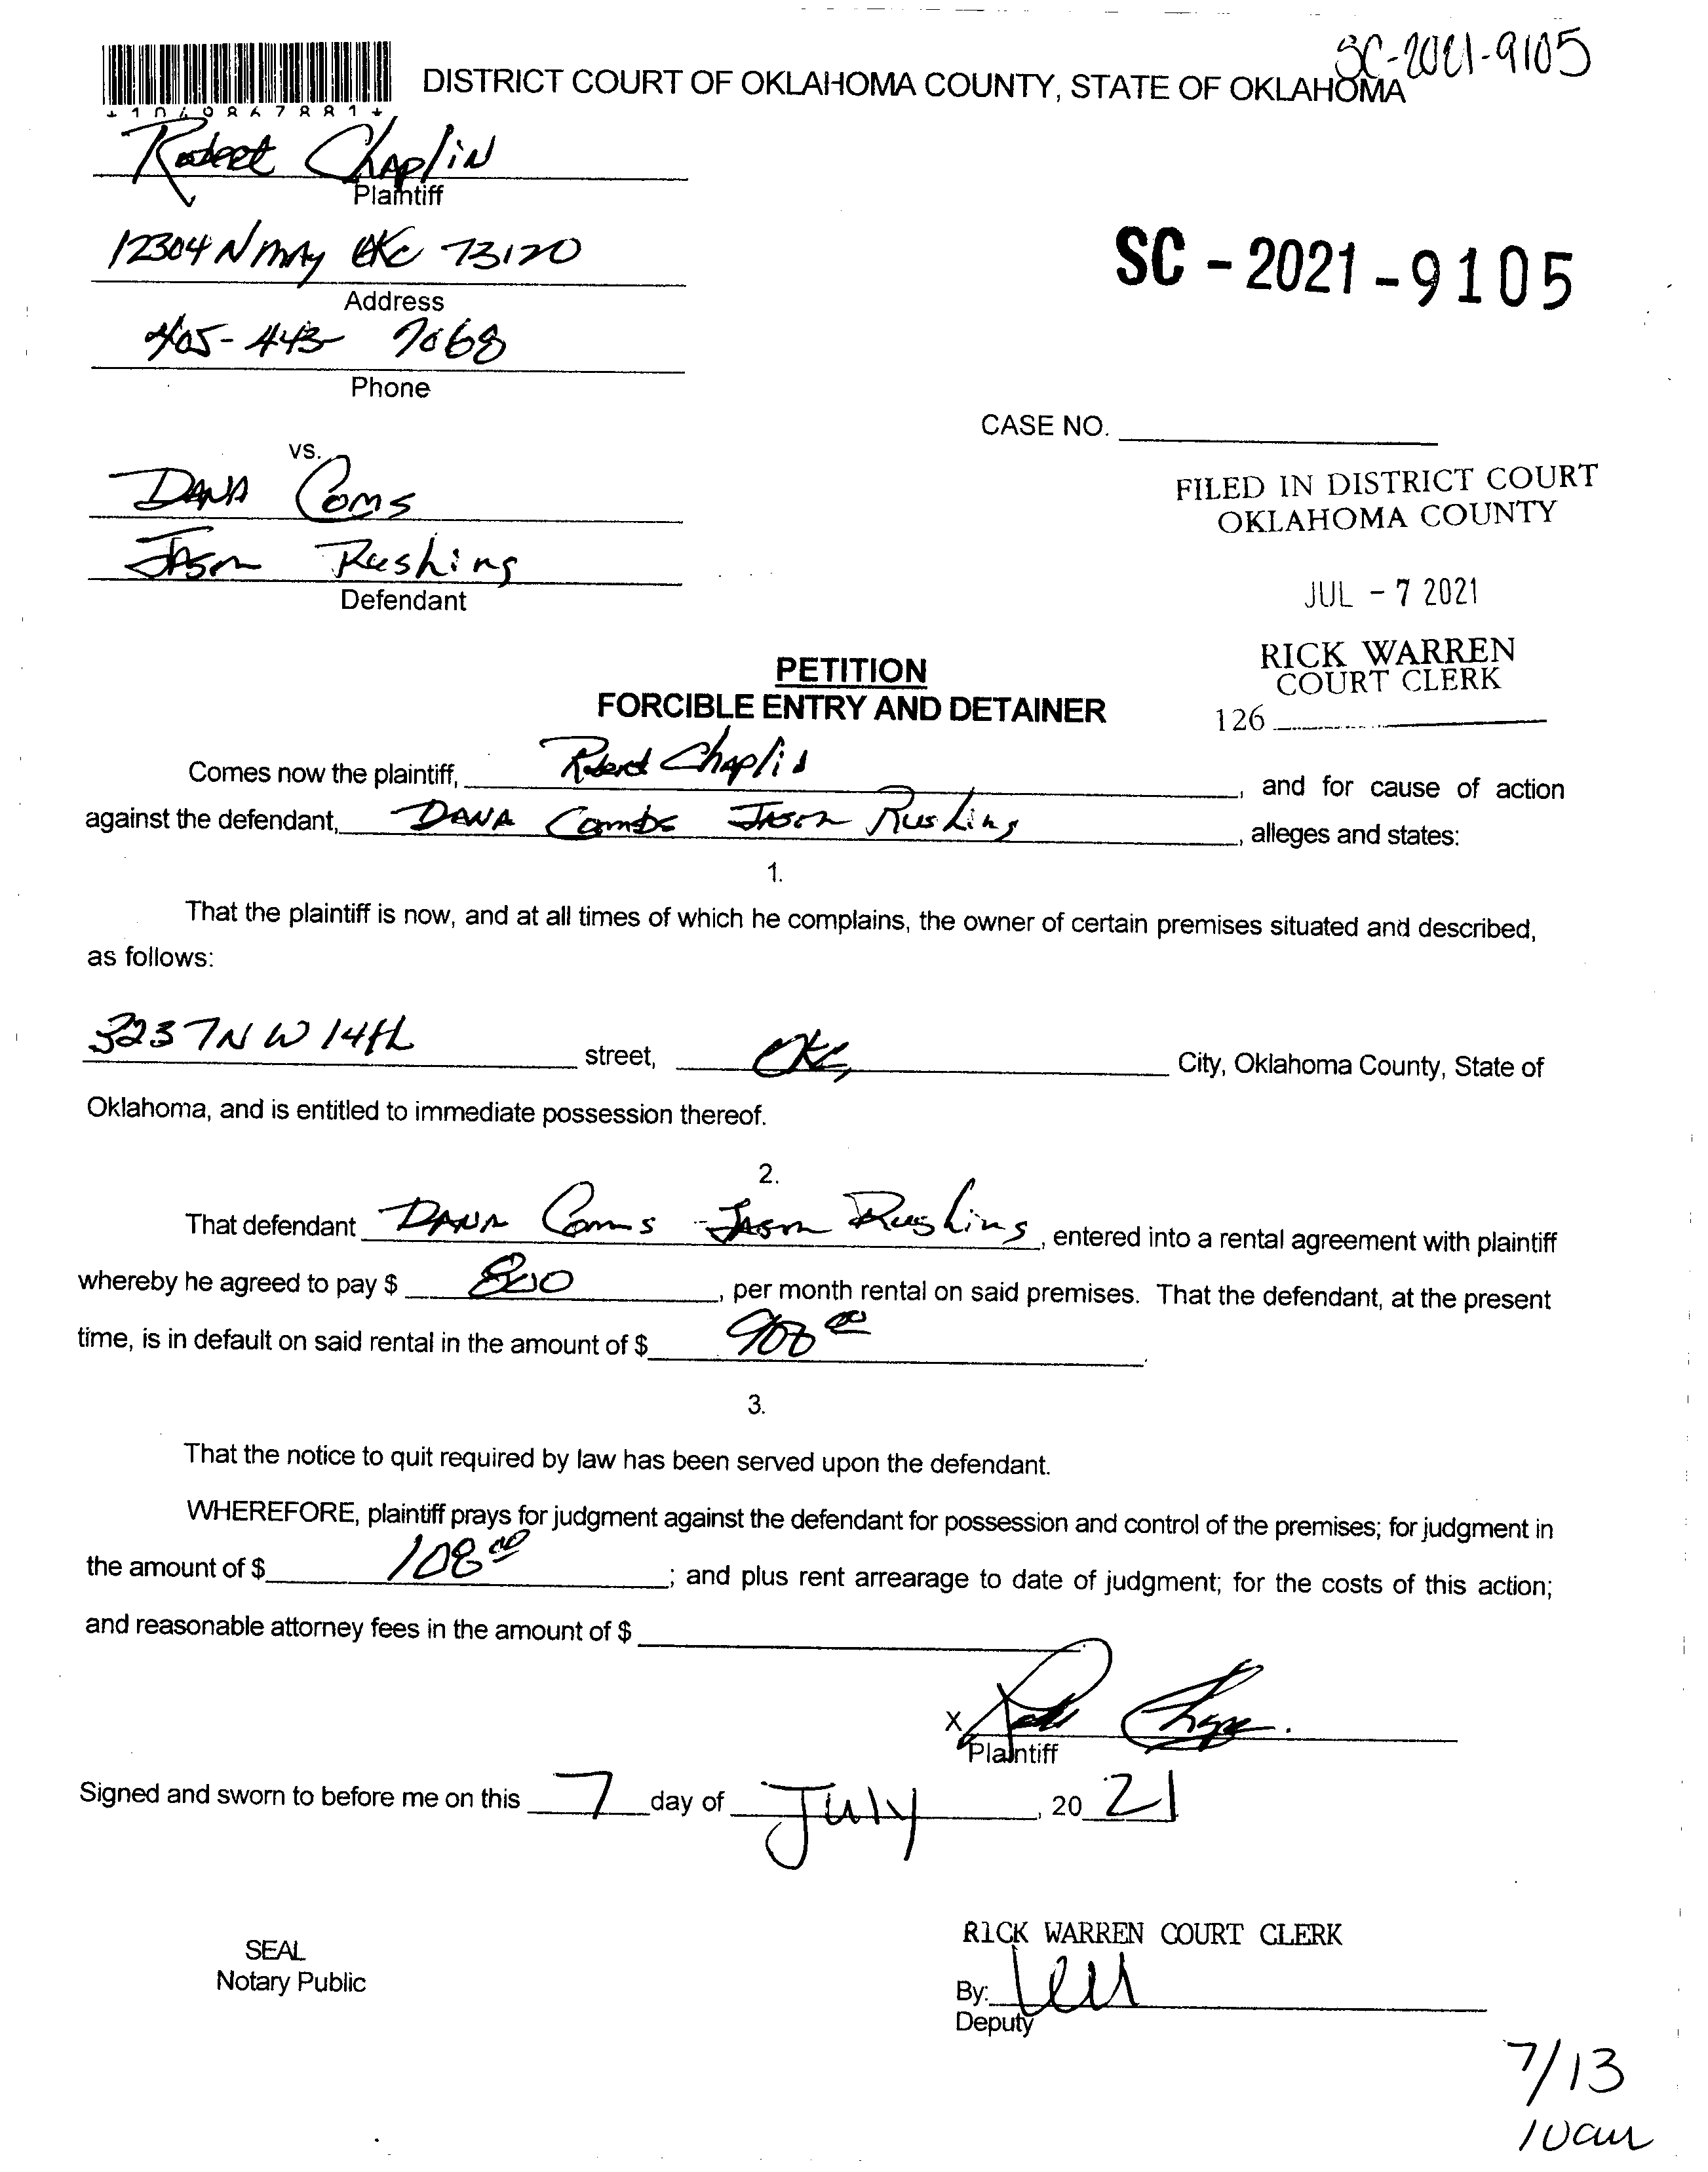 SC-2021-9105
DISTRICT COURT OF OKLAHOMA COUNTY, STATE OF OKLAHOMA
Robert Chaplin
Plaintiff
12304 N MAy OKC 73120
SC - 2021 - 9105
Address
405-443- 7068
Phone
CASE NO.
vs.
DANA Coms
FILED IN DISTRICT COURT
OKLAHOMA COUNTY
Jason Rushing
Defendant
JUL - 7 2021
RICK WARREN
COURT CLERK
126
PETITION
FORCIBLE ENTRY AND DETAINER
Comes now the plaintiff, Robert Chaplin, and for cause of action
against the defendant, DANA Combs Jason Rushing, alleges and states:
1.
That the plaintiff is now, and at all times of which he complains, the owner of certain premises situated and described,
as follows:
3237 NW 14th street, OKC, City, Oklahoma County, State of
Oklahoma, and is entitled to immediate possession thereof.
2.
That defendant DANA Coms Jason Rushing, entered into a rental agreement with plaintiff
whereby he agreed to pay $ 800, per month rental on said premises. That the defendant, at the present
time, is in default on said rental in the amount of $ 908 00.
3.
That the notice to quit required by law has been served upon the defendant.
WHEREFORE, plaintiff prays for judgment against the defendant for possession and control of the premises; for judgment in
the amount of $ 108 00; and plus rent arrearage to date of judgment; for the costs of this action;
and reasonable attorney fees in the amount of $
X
Plaintiff
Signed and sworn to before me on this 7 day of July, 20 21
RICK WARREN COURT CLERK
SEAL
Notary Public
By:
Deputy
7/13
10am